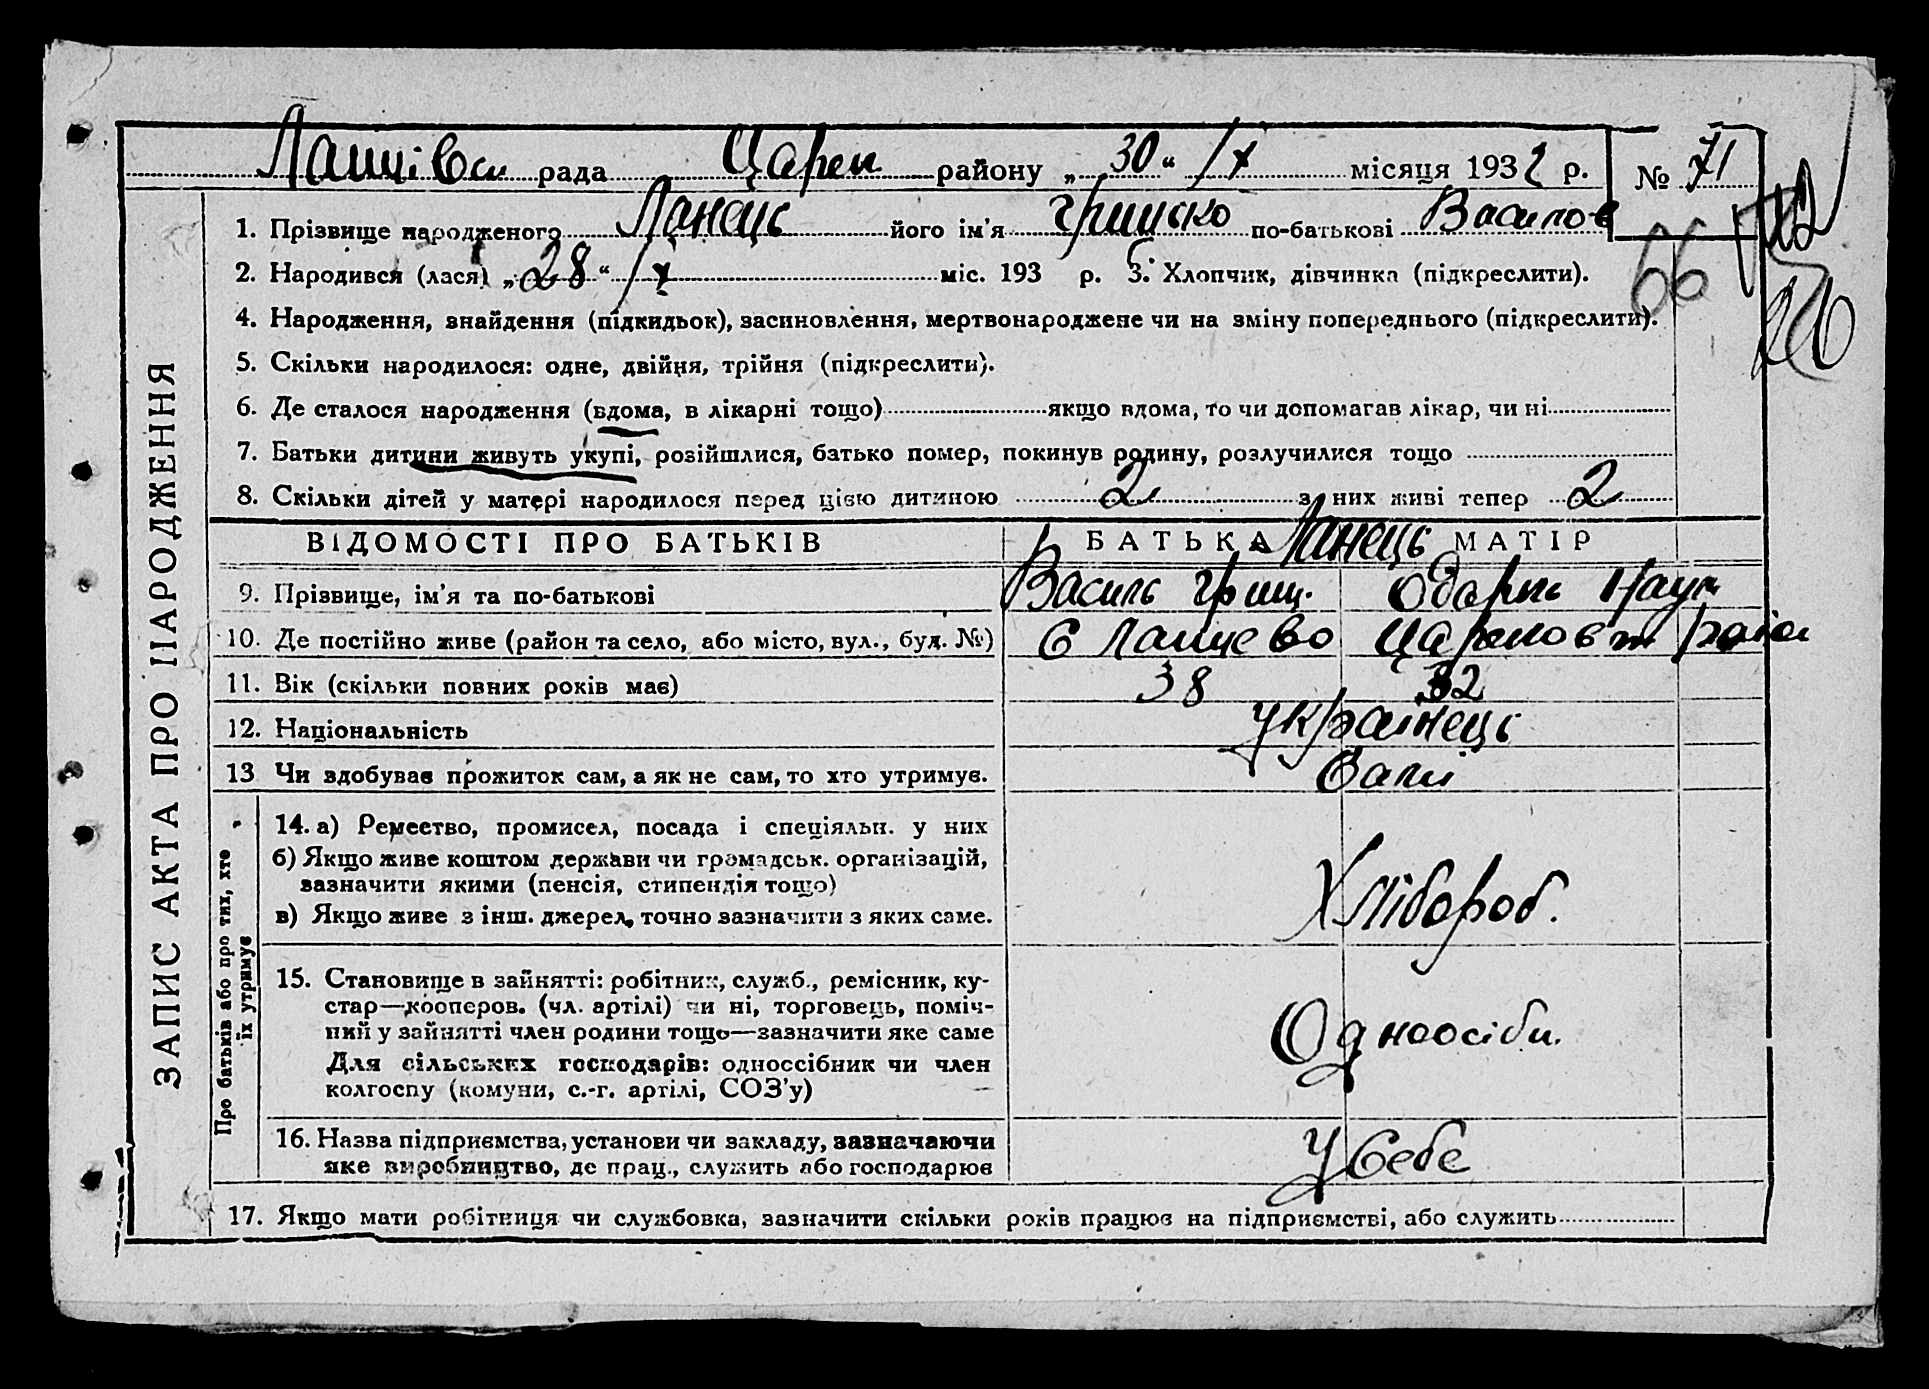 Лашківськ рада Царек району „ 30 “ IX місяця 1932 р. № 71
66
ЗАПИС АКТА ПРО НАРОДЖЕННЯ
1. Прізвище народженого Ланець його ім'я Грицько по-батькові Василов
2. Народився (лася) „ 28 “ IX міс. 193 р. 3. Хлопчик, дівчинка (підкреслити).
4. Народження, знайдення (підкидьок), засиновлення, мертвонароджене чи на зміну попереднього (підкреслити).
5. Скільки народилося: одне, двійня, трійня (підкреслити).
6. Де сталося народження (вдома, в лікарні тощо) якщо вдома, то чи допомагав лікар, чи ні
7. Батьки дитини живуть укупі, розійшлися, батько помер, покинув родину, розлучилися тощо
8. Скільки дітей у матері народилося перед цією дитиною 2 з них живі тепер 2
ВІДОМОСТІ ПРО БАТЬКІВ БАТЬКА Ланець МАТІР
9. Прізвище, ім'я та по-батькові Василь Гриц. Одарка Наум
10. Де постійно живе (район та село, або місто, вул., буд. №) с
11. Вік (скільки повних років має) 38 32
12. Національність українець
13 Чи здобував прожиток сам, а як не сам, то хто утримує. Самі
Про батьків або про тих, хто їх утримує
14. а) Ремество, промисел, посада і спеціяльн. у них
б) Якщо живе коштом держави чи громадськ. організацій,
зазначити якими (пенсія, стипендія тощо)
в) Якщо живе з інш. джерел, точно зазначити з яких саме.
Хлібороб.
15. Становище в зайнятті: робітник, служб., ремісник, ку-
стар—кооперов. (чл. артілі) чи ні, торговець, поміч-
ний у зайнятті член родини тощо—зазначити яке саме
Для сільських господарів: одноосібник чи член
колгоспу (комуни, с.-г. артілі, СОЗ'у)
Одноосібн.
16. Назва підприємства, установи чи закладу, зазначаючи
яке виробництво, де прац., служить або господарює
У себе
17. Якщо мати робітниця чи службовка, зазначити скільки років працює на підприємстві, або служить